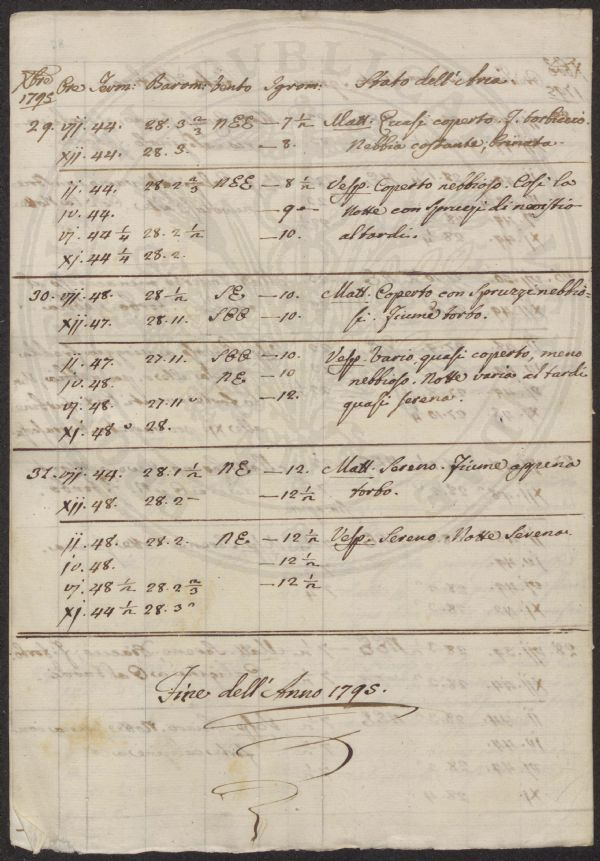 Xbre Ore Term: Barom: Vento Igrom: Stato dell'Aria
1795
29. vij. 44. 28. 3 2/3 NEE — 7 1/2 Matt. Quasi coperto. F. torbiccio.
xij. 44. 28. 3. — 8. Nebbia costante, Brinata.
ij. 44. 28. 2 2/3 NEE — 8 1/2 Vesp. Coperto nebbioso. Così la
iv. 44. — 9 Notte con Spruzzi di nevistio
vj. 44 1/4 28. 2 1/2 — 10. al tardi.
xj. 44 1/4 28. 2.
30. vij. 48. 28. 1/2 SE — 10. Matt. Coperto con Spruzzi nebbio=
xij. 47. 28. 11. SEE — 10. si. Fiume torbo.
ij. 47. 27. 11. SEE — 10. Vesp. Vario, quasi coperto, meno
iv. 48. NE — 10 nebbioso. Notte varia al tardi
vj. 48. 27. 11 — 12. quasi serena.
xj. 48 28.
31. vij. 44. 28. 1 1/2 NE — 12. Matt. Sereno. Fiume appena
xij. 48. 28. 2 — — 12 1/2 torbo.
ij. 48. 28. 2. NE — 12 1/2 Vesp. Sereno. Notte Serena.
iv. 48. — 12 1/2
vj. 48 1/2 28. 2 2/3 — 12 1/2
xj. 44 1/2 28. 3
Fine dell'Anno 1795.